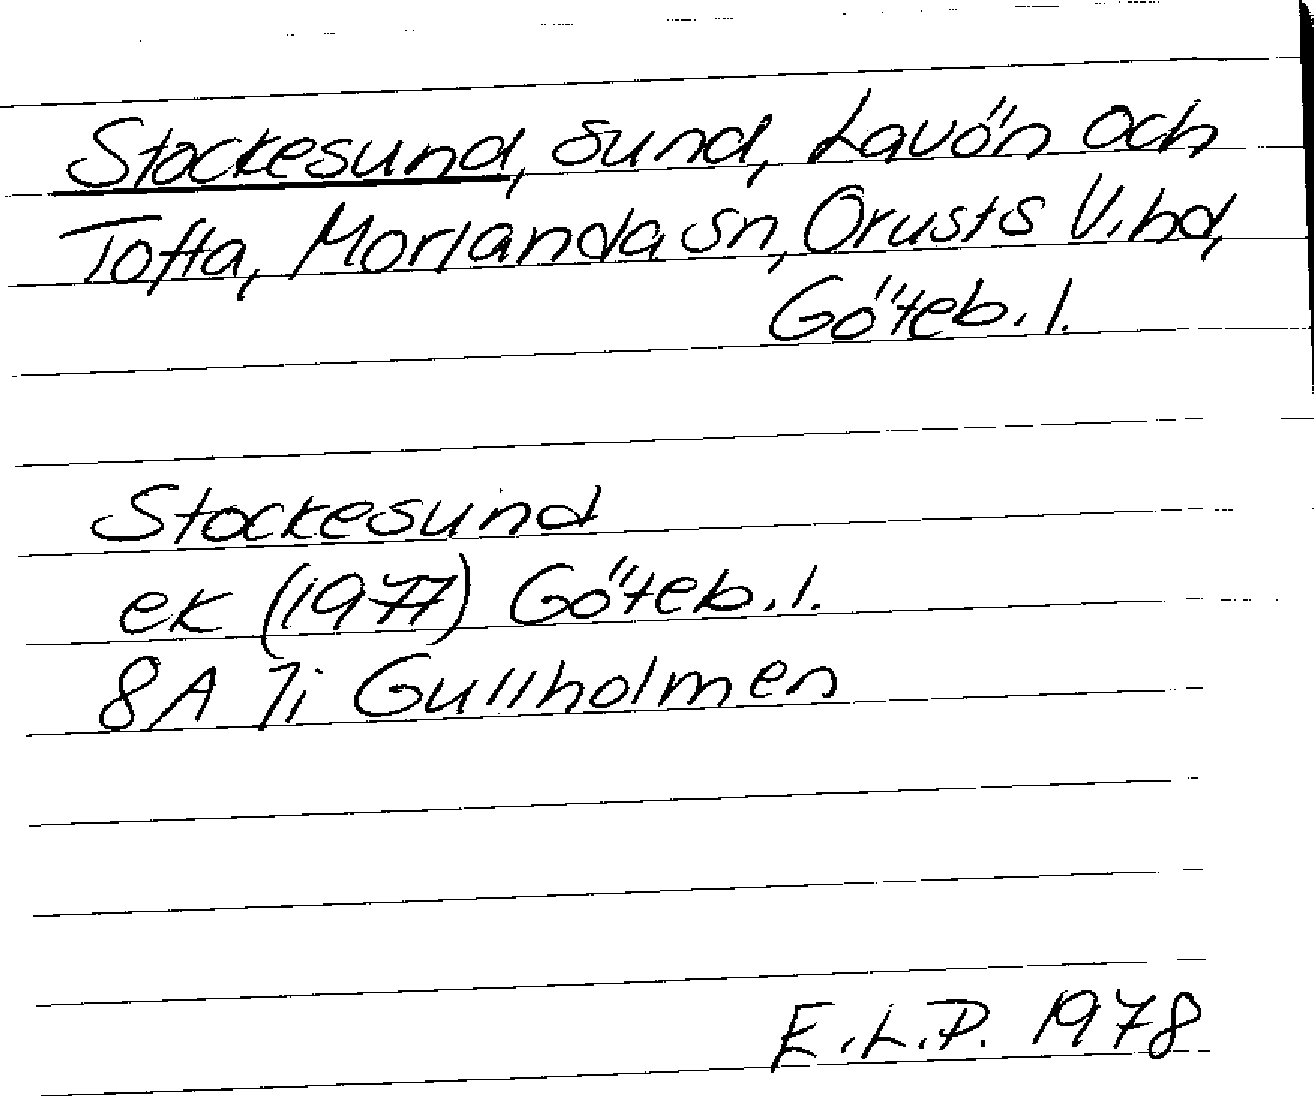 Stockesund, sund, Lavön och
Tofta, Morlanda sn, Orusts V. hd,
Göteb. l.
Stockesund
ek (1977) Göteb. l.
8A 7i Gullholmen
E.L.P. 1978